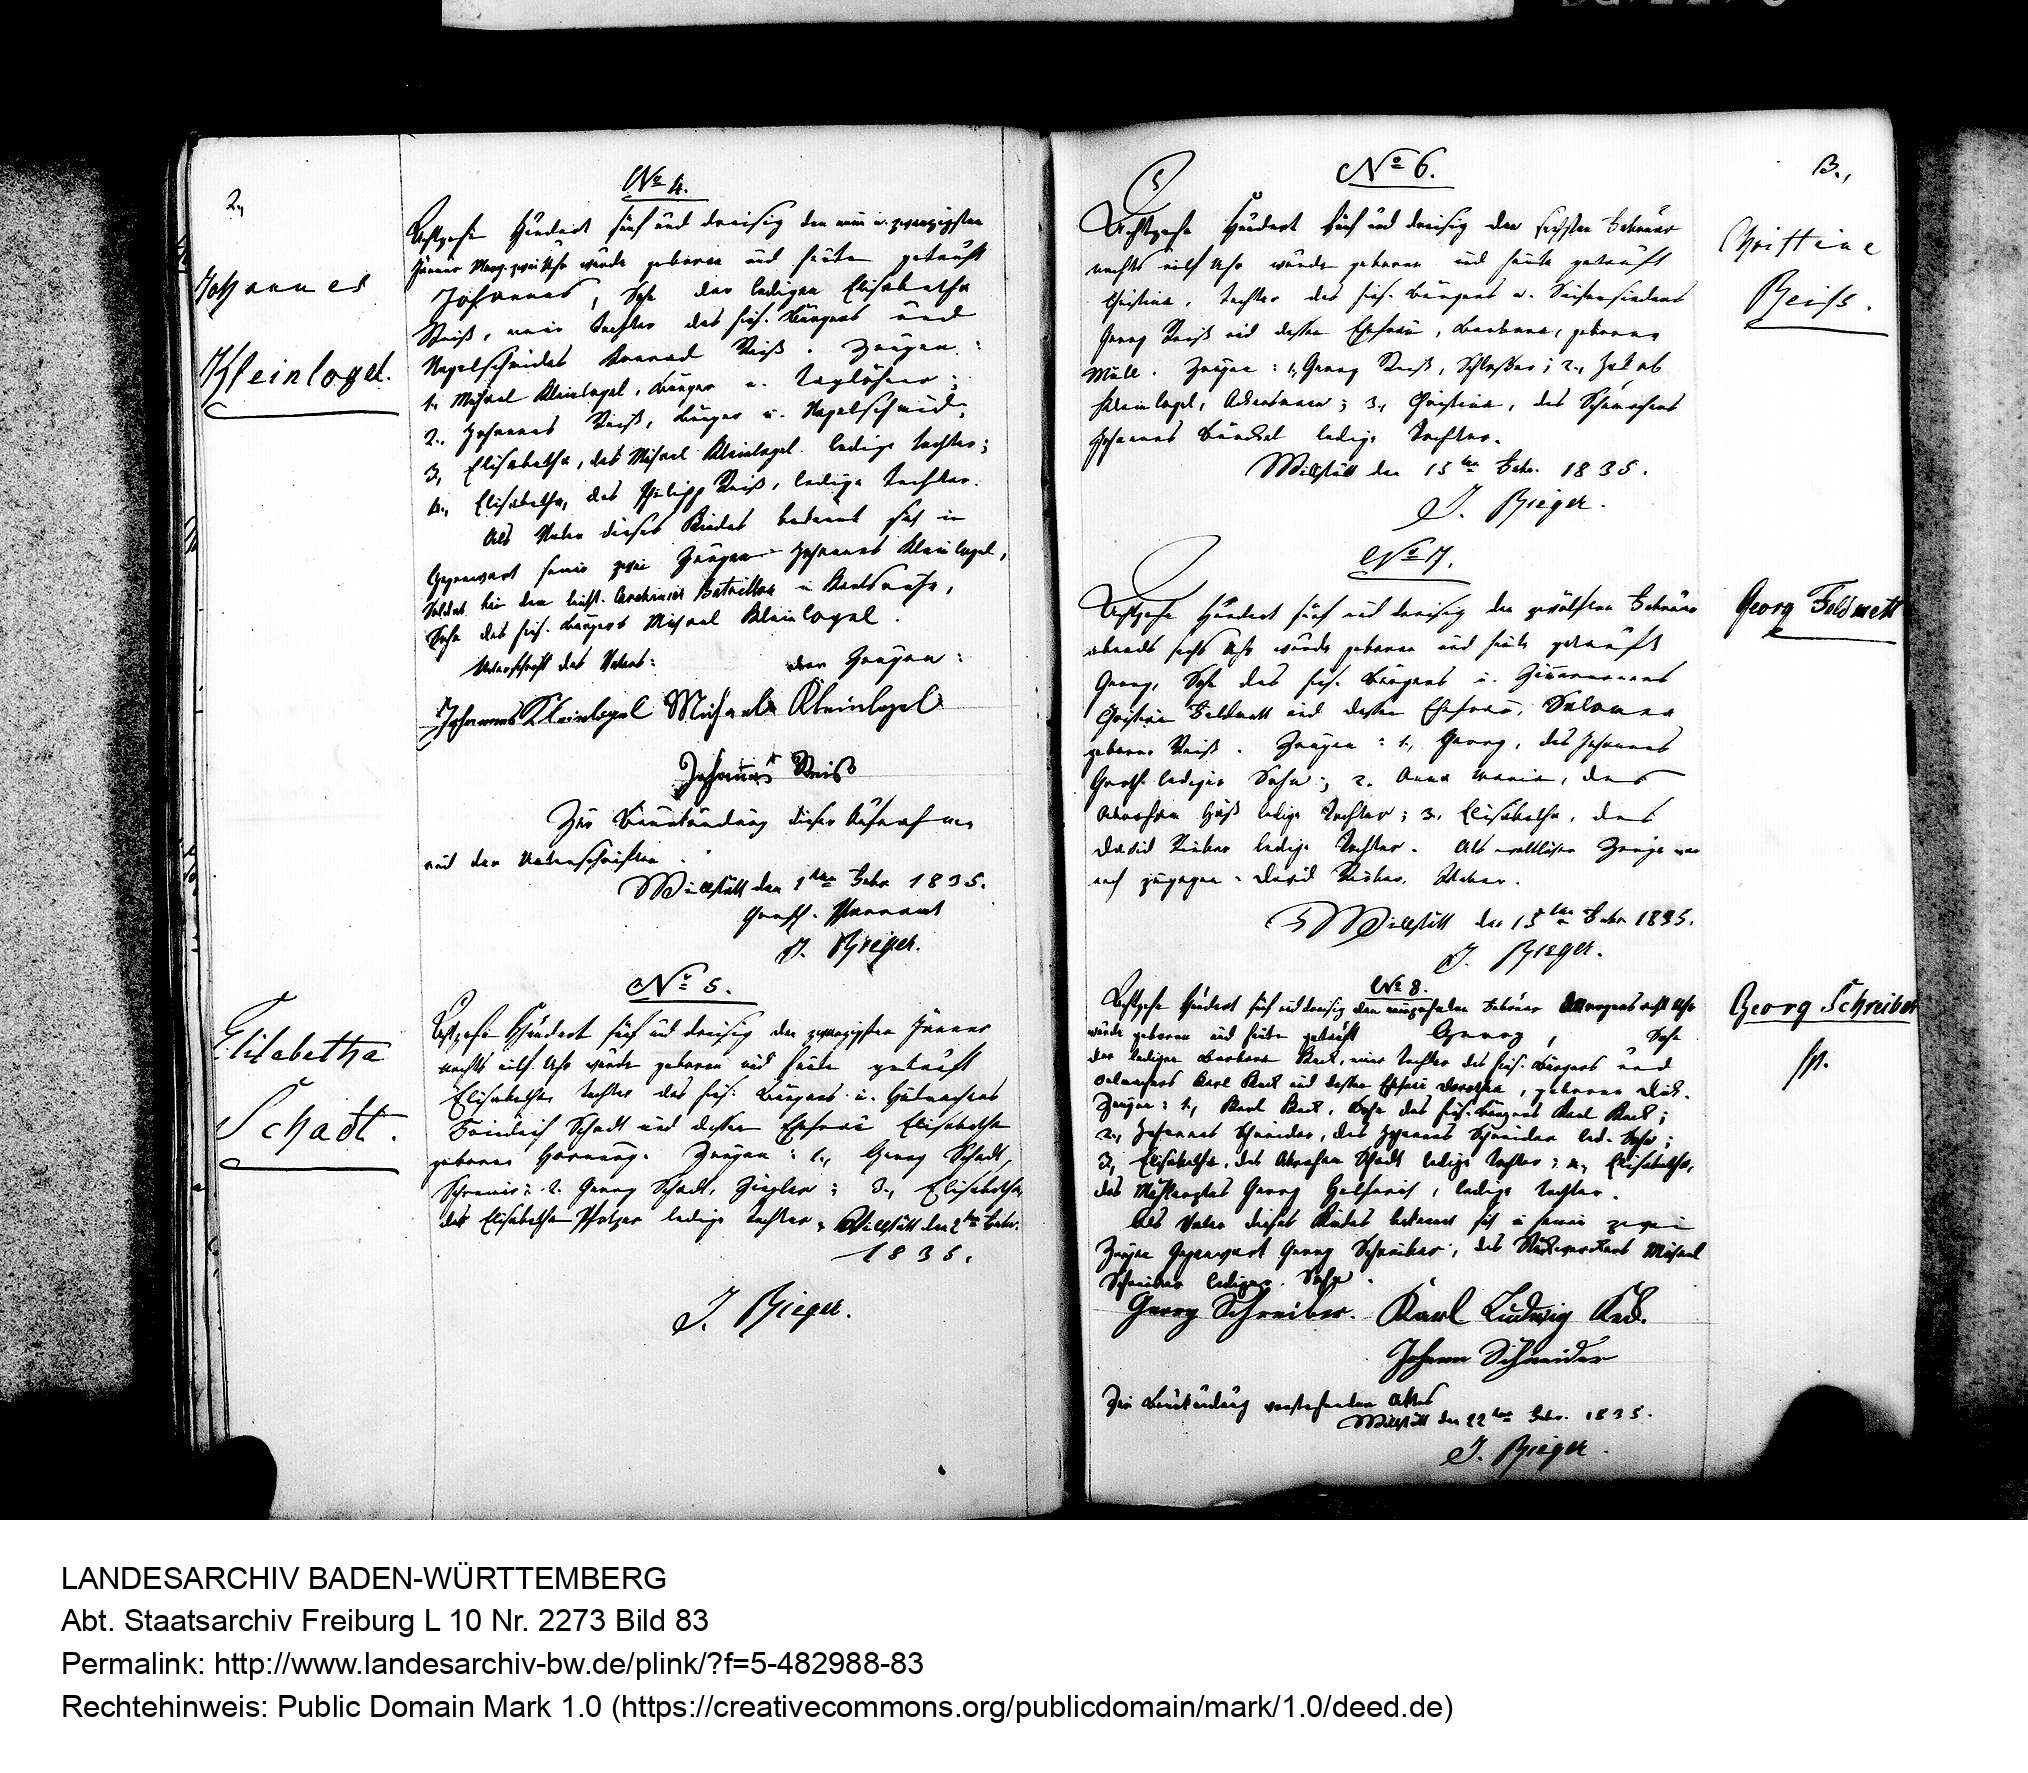 2.,
Johannes
Kleinlogel.
No 4.
Achtzehn Hundert fünf und dreisig den neun u. zwanzigsten
Jänner Morg. zwei Uhr wurde geboren und heute getauft
Johannes, Sohn der ledigen Elisabetha
Reiß, einer Tochter des hies. Bürgers und
Nagelschmides Konrad Reiß. Zeugen:
1., Michael Kleinlogel, Bürger u. Taglöhner;
2., Johannes Reiß, Bürger u. Nagelschmid;
3., Elisabetha, des Michael Kleinlogel ledige Tochter;
4., Elisabetha, des Philipp Reiß, ledige Tochter.
Als Vater dieses Kindes bekennt sich in
Gegenwart seiner zwei Zeugen Johannes Kleinlogel,
Soldat bei dem leicht. Infanterie Bataillon in Karlsruhe,
Sohn des hies. Bürgers Michael Kleinlogel.
Unterschrift des Vaters: der Zeugen:
Johannes Kleinlogel Michael Kleinlogel
Johannes Reiß
Zur Beurkundung dieser Aufnahme
und der Unterschriften.
Willstätt den 1ten Febr. 1835.
Pfarramt
J. Rieger.
Elisabetha
Schadt.
No 5.
Achtzehn Hundert fünf und dreisig den zwanzigsten Jänner
nachts eilf Uhr wurde geboren und heute getauft
Elisabetha Tochter des hies. Bürgers u. Hutmachers
Friedrich Schadt und dessen Ehefrau Elisabetha
geborne Hornung. Zeugen: 1., Georg Schadt,
Schreiner; 2. Georg Schadt, Ziegler; 3., Elisabetha,
der Elisabetha Pfotzer ledige Tochter. Willstätt den 2ten Febr.
1835.
J. Rieger.
3.,
No 6.
Christine
Reiss.
Achtzehn Hundert fünf und dreisig den sechsten Februar
nachts eilf Uhr wurde geboren und heute getauft
Christine, Tochter des hies. Bürgers u. Seifensieders
Georg Reiß und dessen Ehefrau, Barbara, geborne
Müll. Zeugen: 1., Georg Reiß, Schlosser; 2., Jakob
Kleinlogel, Ackersmann; 3., Christine, des
Johannes Bürkel ledige Tochter.
Willstätt den 15ten Febr. 1835.
J. Rieger.
No 7.
Georg Feldmett
Achtzehn Hundert fünf und dreisig den zwölften Februar
abends sechs Uhr wurde geboren und heute getauft
Georg, Sohn des hies. Bürgers u. Zimmermanns
Christian Feldmett und dessen Ehefrau, Salomea
geborne Reiß. Zeugen: 1., Georg, des Johannes
lediger Sohn; 2. Anna Maria, des
Abraham Huß ledige Tochter; 3., Elisabetha, des
David ledige Tochter. Als weltlicher Zeuge war
noch zugegen David Weber.
Willstätt den 15ten Febr. 1835.
J. Rieger.
No 8.
Georg Schreiber
sp.
Achtzehn Hundert fünf und dreisig den neunzehnten Februar Morgens acht Uhr
wurde geboren und heute getauft Georg, Sohn
der ledigen Barbara Keck, einer Tochter des hies. Bürgers und
Karl Keck und dessen Ehefrau Dorothea, geborne
Zeugen: 1., Karl Keck, Sohn des hies. Bürgers Karl Keck;
2., Johannes Schneider, des Johannes Schneider led. Sohn;
3., Elisabetha, des Abraham Schadt ledige Tochter; 4., Elisabetha,
des Georg Helfrich, ledige Tochter.
Als Vater dieses Kindes bekennt sich in seiner zwei
Zeugen Gegenwart Georg Schreiber, des Michael
Schreiber lediger Sohn.
Georg Schreiber. Karl Ludwig Keck.
Johann Schneider
Zur Beurkundung vorstehenden Aktes
Willstätt den 22ten Febr. 1835.
J. Rieger.
LANDESARCHIV BADEN-WÜRTTEMBERG
Abt. Staatsarchiv Freiburg L 10 Nr. 2273 Bild 83
Permalink: http://www.landesarchiv-bw.de/plink/?f=5-482988-83
Rechtehinweis: Public Domain Mark 1.0 (https://creativecommons.org/publicdomain/mark/1.0/deed.de)